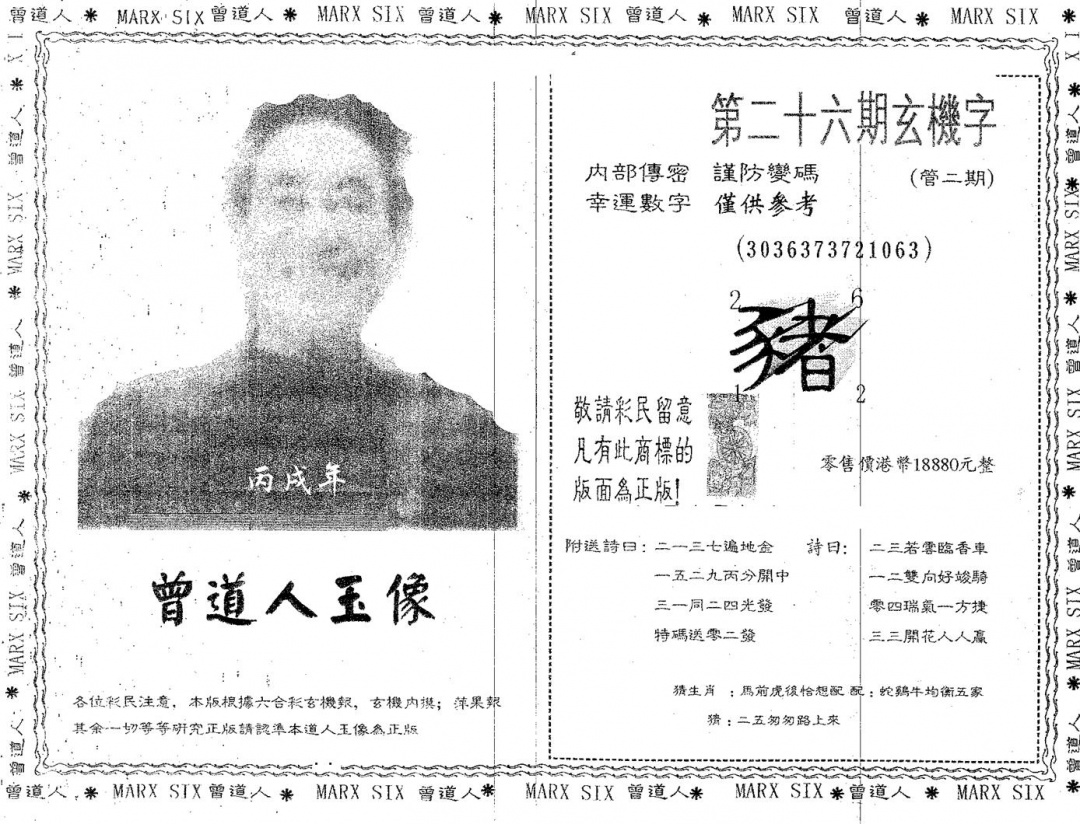 曾道人 * MARX SIX 曾道人 * MARX SIX 曾道人 * MARX SIX 曾道人 * MARX SIX 曾道人 * MARX SIX *
丙戌年
曾道人玉像
各位彩民注意，本版根據六合彩玄機報，玄機內摸；萍果報
其余一切等等研究正版請認準本道人玉像為正版
第二十六期玄機字
內部傳密 謹防變碼 (管二期)
幸運數字 僅供參考
(3036373721063)
2 6
豬
1 2
敬請彩民留意
凡有此商標的
版面為正版!
零售價港幣18880元整
附送詩曰：二一三七遍地金
一五二九丙分開中
三一同二四光發
特碼送零二發
詩曰：二三若零臨香車
一二雙向好竣騎
零四瑞氣一方捷
三三開花人人贏
猜生肖：馬前虎後恰想配 配：蛇鷄牛均衡五家
猜：二五匆匆路上來
曾道人 * MARX SIX 曾道人 * MARX SIX 曾道人 * MARX SIX 曾道人 * MARX SIX * 曾道人 * MARX SIX